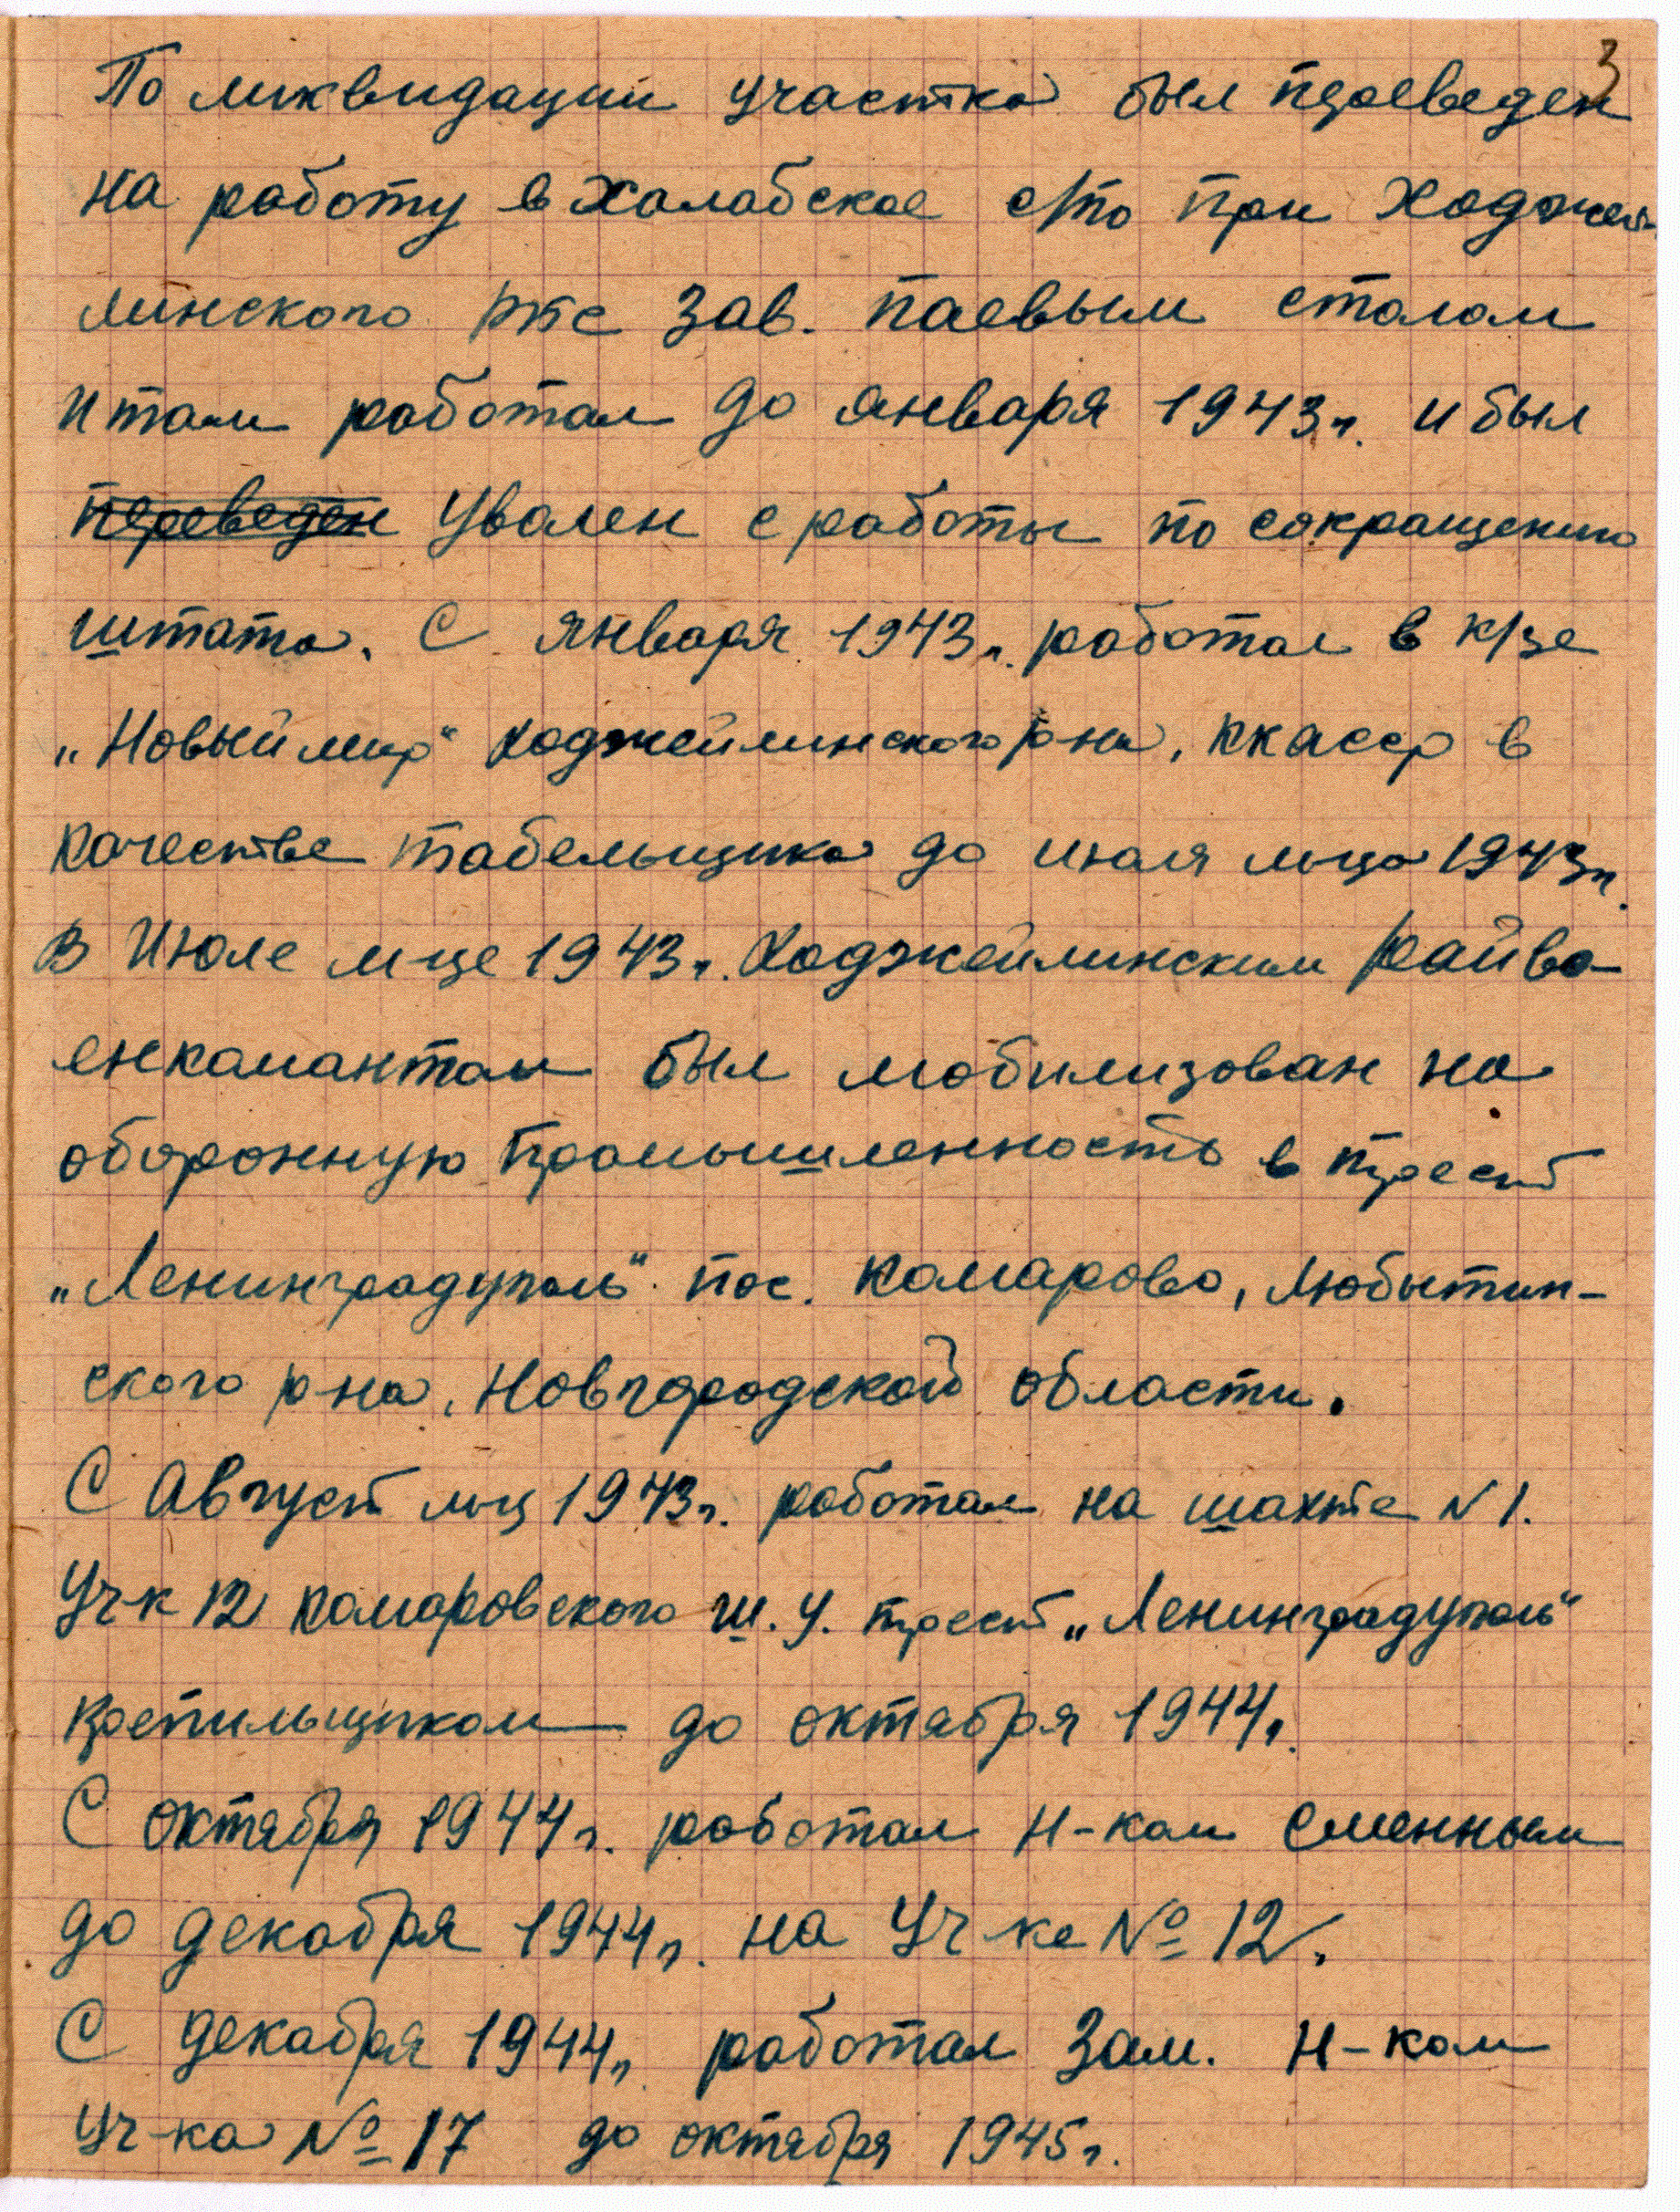 3
По ликвидации участка был преведен
на работу в Халабское с/по при Ходжей-
линского рпс зав. паевым столом
и там работал до января 1943г. и был
переведен увален с работы по сокращению
штата. С января 1943г. работал в к/зе
„Новый мир“ Ходжейлинского р-на, ККАССР в
качестве табельщика до июля м-ца 1943г.
В Июле м-це 1943г. Ходжейлинским Райво-
енкомантом был мобилизован на
оборонную промышленность в трест
„Ленинградуголь“ пос. Комарово, Любытин-
ского р-на, Новгородской области.
С Август м-ц 1943г. работал на шахте N 1.
Уч-к 12 Комаровского ш.у. трест „Ленинградуголь“
крепильщиком до октября 1944г.
С октября 1944г. работал н-ком сменным
до декабря 1944г. на Уч-ке № 12.
С декабря 1944г. работал зам. н-ком
Уч-ка № 17 до октября 1945г.